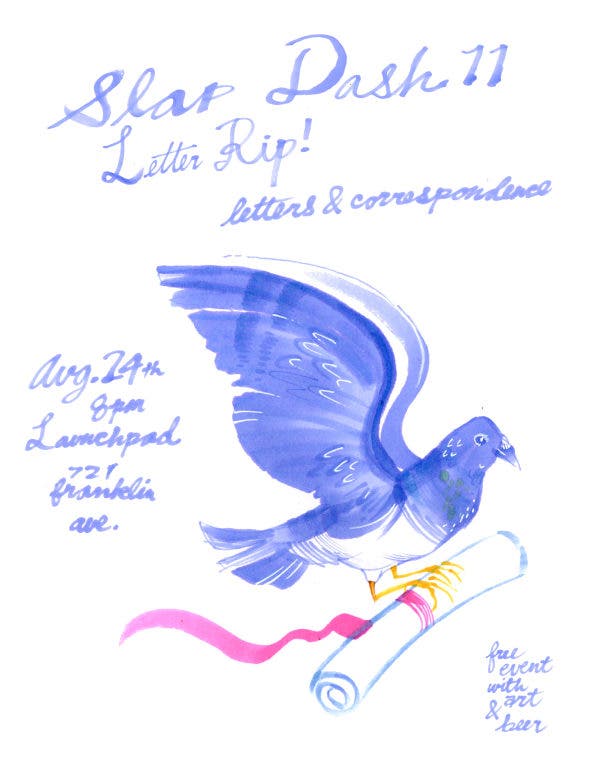 Slap Dash 11
Letter Rip!
letters & correspondence
Aug. 24th
8pm
Launchpad
721
franklin
ave.
free
event
with
art
& beer